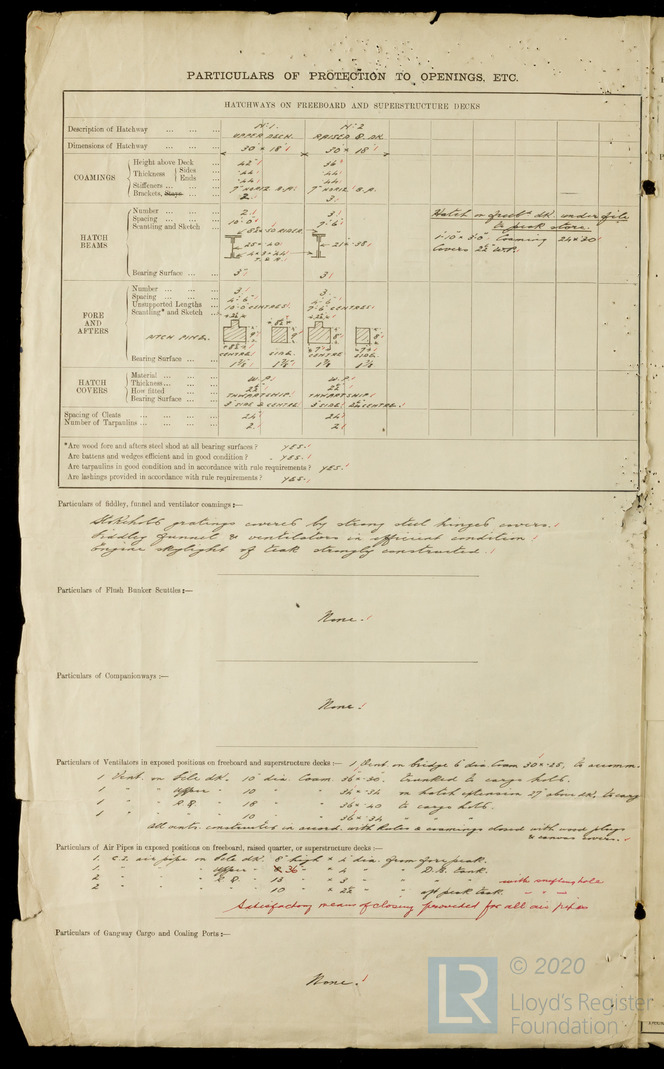 PARTICULARS OF PROTECTION TO OPENINGS, ETC.
HATCHWAYS ON FREEBOARD AND SUPERSTRUCTURE DECKS
Description of Hatchway ... ... ... No 1. UPPER DECK. No 2 RAISED Q. DK.
Dimensions of Hatchway ... ... ... 30' × 18' 30' × 18'
COAMINGS
Height above Deck ... 42" 36"
Thickness Sides ... .44 .44
Ends ... .44 .44
Stiffeners ... ... 7" HORIZ. B.A. 7" HORIZ. B.A.
Brackets, Stays ... ... 2. 3
HATCH BEAMS
Number ... ... ... 2 3
Spacing ... ... ... 10'-0" 7'-6"
Scantling and Sketch ...
Bearing Surface ... ... 3" 3
Hatch on freeb'd dk. under f'c'le
to peak store.
Coaming 24" × .30
Covers 2½" W.P.
FORE AND AFTERS
Number ... ... ... 3 3
Spacing ... ... ... 4'-6" 4'-6"
Unsupported Lengths ... 10'-0 CENTRES. 7'-6 CENTRES.
Scantling* and Sketch ...
PITCH PINE.
CENTRE SIDE. CENTRE SIDE.
Bearing Surface ... ...
HATCH COVERS
Material ... ... ... W.P. W.P.
Thickness ... ... ... 2½" 2½"
How fitted ... ... THWARTSHIP. THWARTSHIP.
Bearing Surface ... ... 3" SIDE 2 CENTRE 3" SIDE 2½ CENTRE.
Spacing of Cleats ... ... ... 24" 24"
Number of Tarpaulins ... ... ... 2. 2
*Are wood fore and afters steel shod at all bearing surfaces? YES.
Are battens and wedges efficient and in good condition? YES.
Are tarpaulins in good condition and in accordance with rule requirements? YES.
Are lashings provided in accordance with rule requirements? YES.
Particulars of fiddley, funnel and ventilator coamings:—
Stokehold gratings covered by strong steel hinged covers.
Fiddley funnel & ventilators in efficient condition
Engine skylight of teak strongly constructed.
Particulars of Flush Bunker Scuttles:—
None.
Particulars of Companionways:—
None.
Particulars of Ventilators in exposed positions on freeboard and superstructure decks:— 1 Vent. on bridge 6" dia. Coam 30" × .25, to accomm.
1 Vent. on f'c'le dk. 10" dia. Coam. 36" × .30. trunked to cargo hold.
1 " " Upper " 10 " " 36 × .34 on hatch extension 27" above dk. to cargo
1 " " R.Q. " 18 " " 36" × .40 to cargo hold.
1 " " " 10 " " 36 × .34 " " "
All vents. constructed in accord. with Rules & coamings closed with wood plugs
& canvas covers.
Particulars of Air Pipes in exposed positions on freeboard, raised quarter, or superstructure decks:—
1. C.I. air pipe on f'c'le dk. 8" high × 4" dia. from fore peak.
1. " " " Upper " 36 " × 4 " " D.B. tank.
2 " " " R.Q. " 13 " × 3 " " " with weeping hole
2 " " " " 10 " × 2½ " " aft peak tank. " " "
Satisfactory means of closing provided for all air pipes
Particulars of Gangway Cargo and Coaling Ports:—
None.
LR
© 2020
Lloyd's Register
Foundation